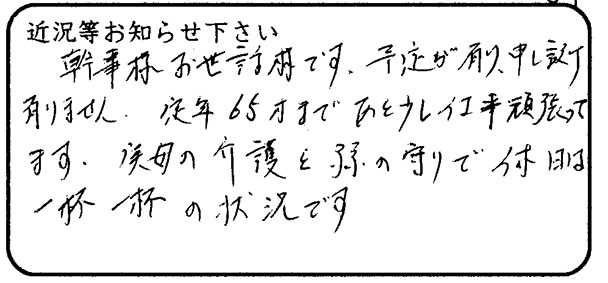 近況等お知らせ下さい
幹事様お世話様です、予定が有り、申し訳
有りません. 定年65才まであと少し仕事頑張って
ます. 義母の介護と孫の守りで休日は
一杯一杯の状況です